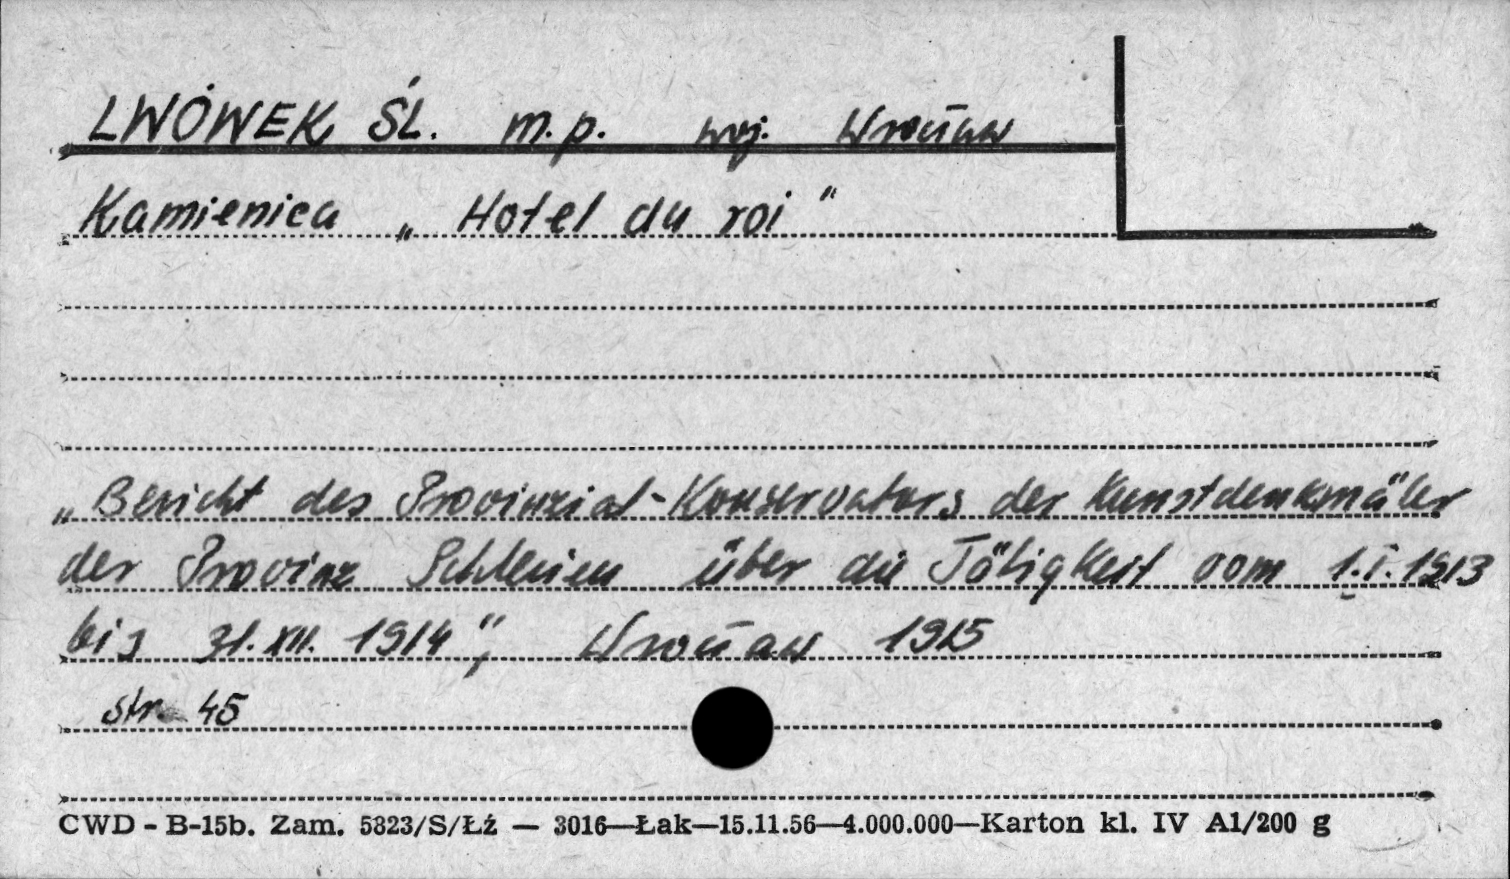 LWÓWEK ŚL. m.p. woj. Wrocław
Kamienica „Hotel du roi"
„Bericht des Provinzial-Konservators der Kunstdenkmäler
der Provinz Schlesien über die Tätigkeit vom 1.I.1913
bis 31.XII.1914", Wrocław 1915
str 45
CWD - B-15b. Zam. 5823/S/Łż — 3016—Łak—15.11.56—4.000.000—Karton kl. IV A1/200 g